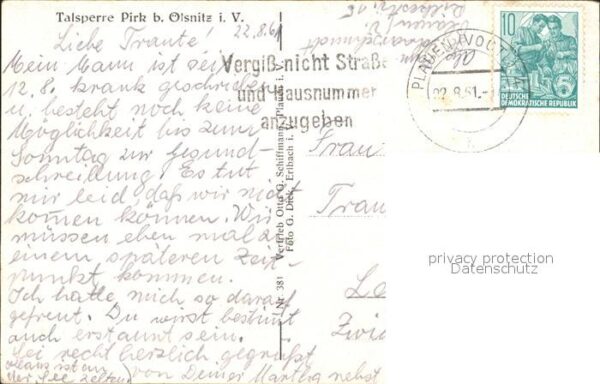 Talsperre Pirk b. Ölsnitz i. V.
22.8.61
Liebe Traute!
Mein Mann ist seit
12.8. krank geschrieben
u. besteht noch keine
Möglichkeit bis zum
Sonntag zur Gesund-
schreibung. Es tut
mir leid, daß wir nicht
kommen können. Wir
müssen eben mal zu
einem späteren Zeit-
punkt kommen.
Ich hatte mich so darauf
gefreut. Du wirst bestimmt
auch erstaunt sein.
Sei recht herzlich gegrüßt
von Deiner Martha nebst
Klaus ist an
der See zelten.
Vergiß nicht Straße
und Hausnummer
anzugeben
PLAUEN (VOGTL)
22.8.61.-
10
DEUTSCHE
DEMOKRATISCHE REPUBLIK
Vertrieb Otto G. Schiffmann, Plauen i. V.
Foto G. Dick, Erlbach i. V.
Nr. 381
Frau
Trau
Zwi
privacy protection
Datenschutz